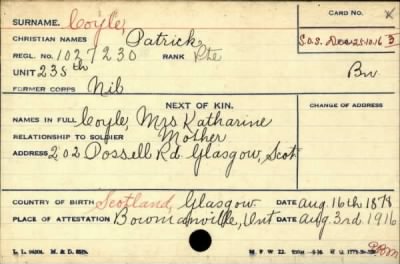 SURNAME. Coyle, CARD NO.
CHRISTIAN NAMES Patrick
REGL. NO. 1027230 RANK Pte S.O.S. Dec 25 1016 3
UNIT 235th Br
FORMER CORPS Nil
NEXT OF KIN. CHANGE OF ADDRESS
NAMES IN FULL Coyle, Mrs Katharine
RELATIONSHIP TO SOLDIER Mother
ADDRESS 202 Dossell Rd Glasgow, Scot
COUNTRY OF BIRTH Scotland, Glasgow DATE Aug. 16th 1878
PLACE OF ATTESTATION Bowmanville, Ont DATE Aug 3rd 1916